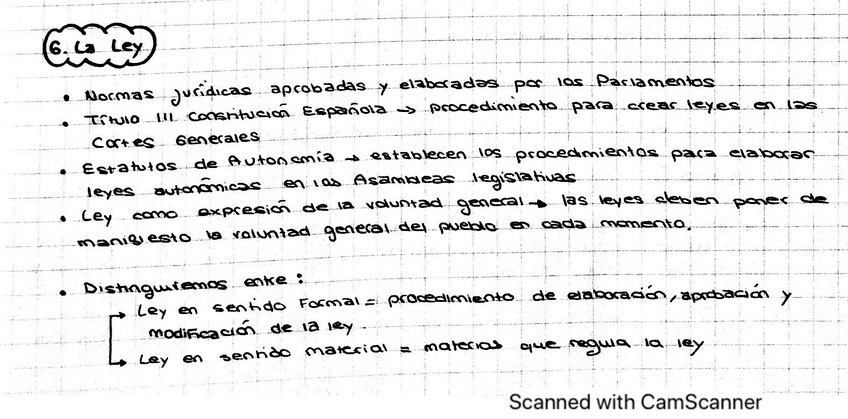 6. La Ley
• Normas jurídicas aprobadas y elaboradas por los Parlamentos
• Título III Constitución Española → procedimiento para crear leyes en las
Cortes Generales
• Estatutos de Autonomía → establecen los procedimientos para elaborar
leyes autonómicas en las Asambleas legislativas
• Ley como expresión de la voluntad general → las leyes deben poner de
manifiesto la voluntad general del pueblo en cada momento.
• Distinguiremos entre:
→ Ley en sentido Formal = procedimiento de elaboración, aprobación y
modificación de la ley.
→ Ley en sentido material = materias que regula la ley
Scanned with CamScanner